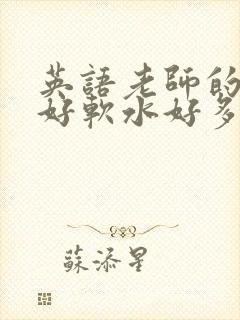 英語老師的
好軟水好多
蘇添星